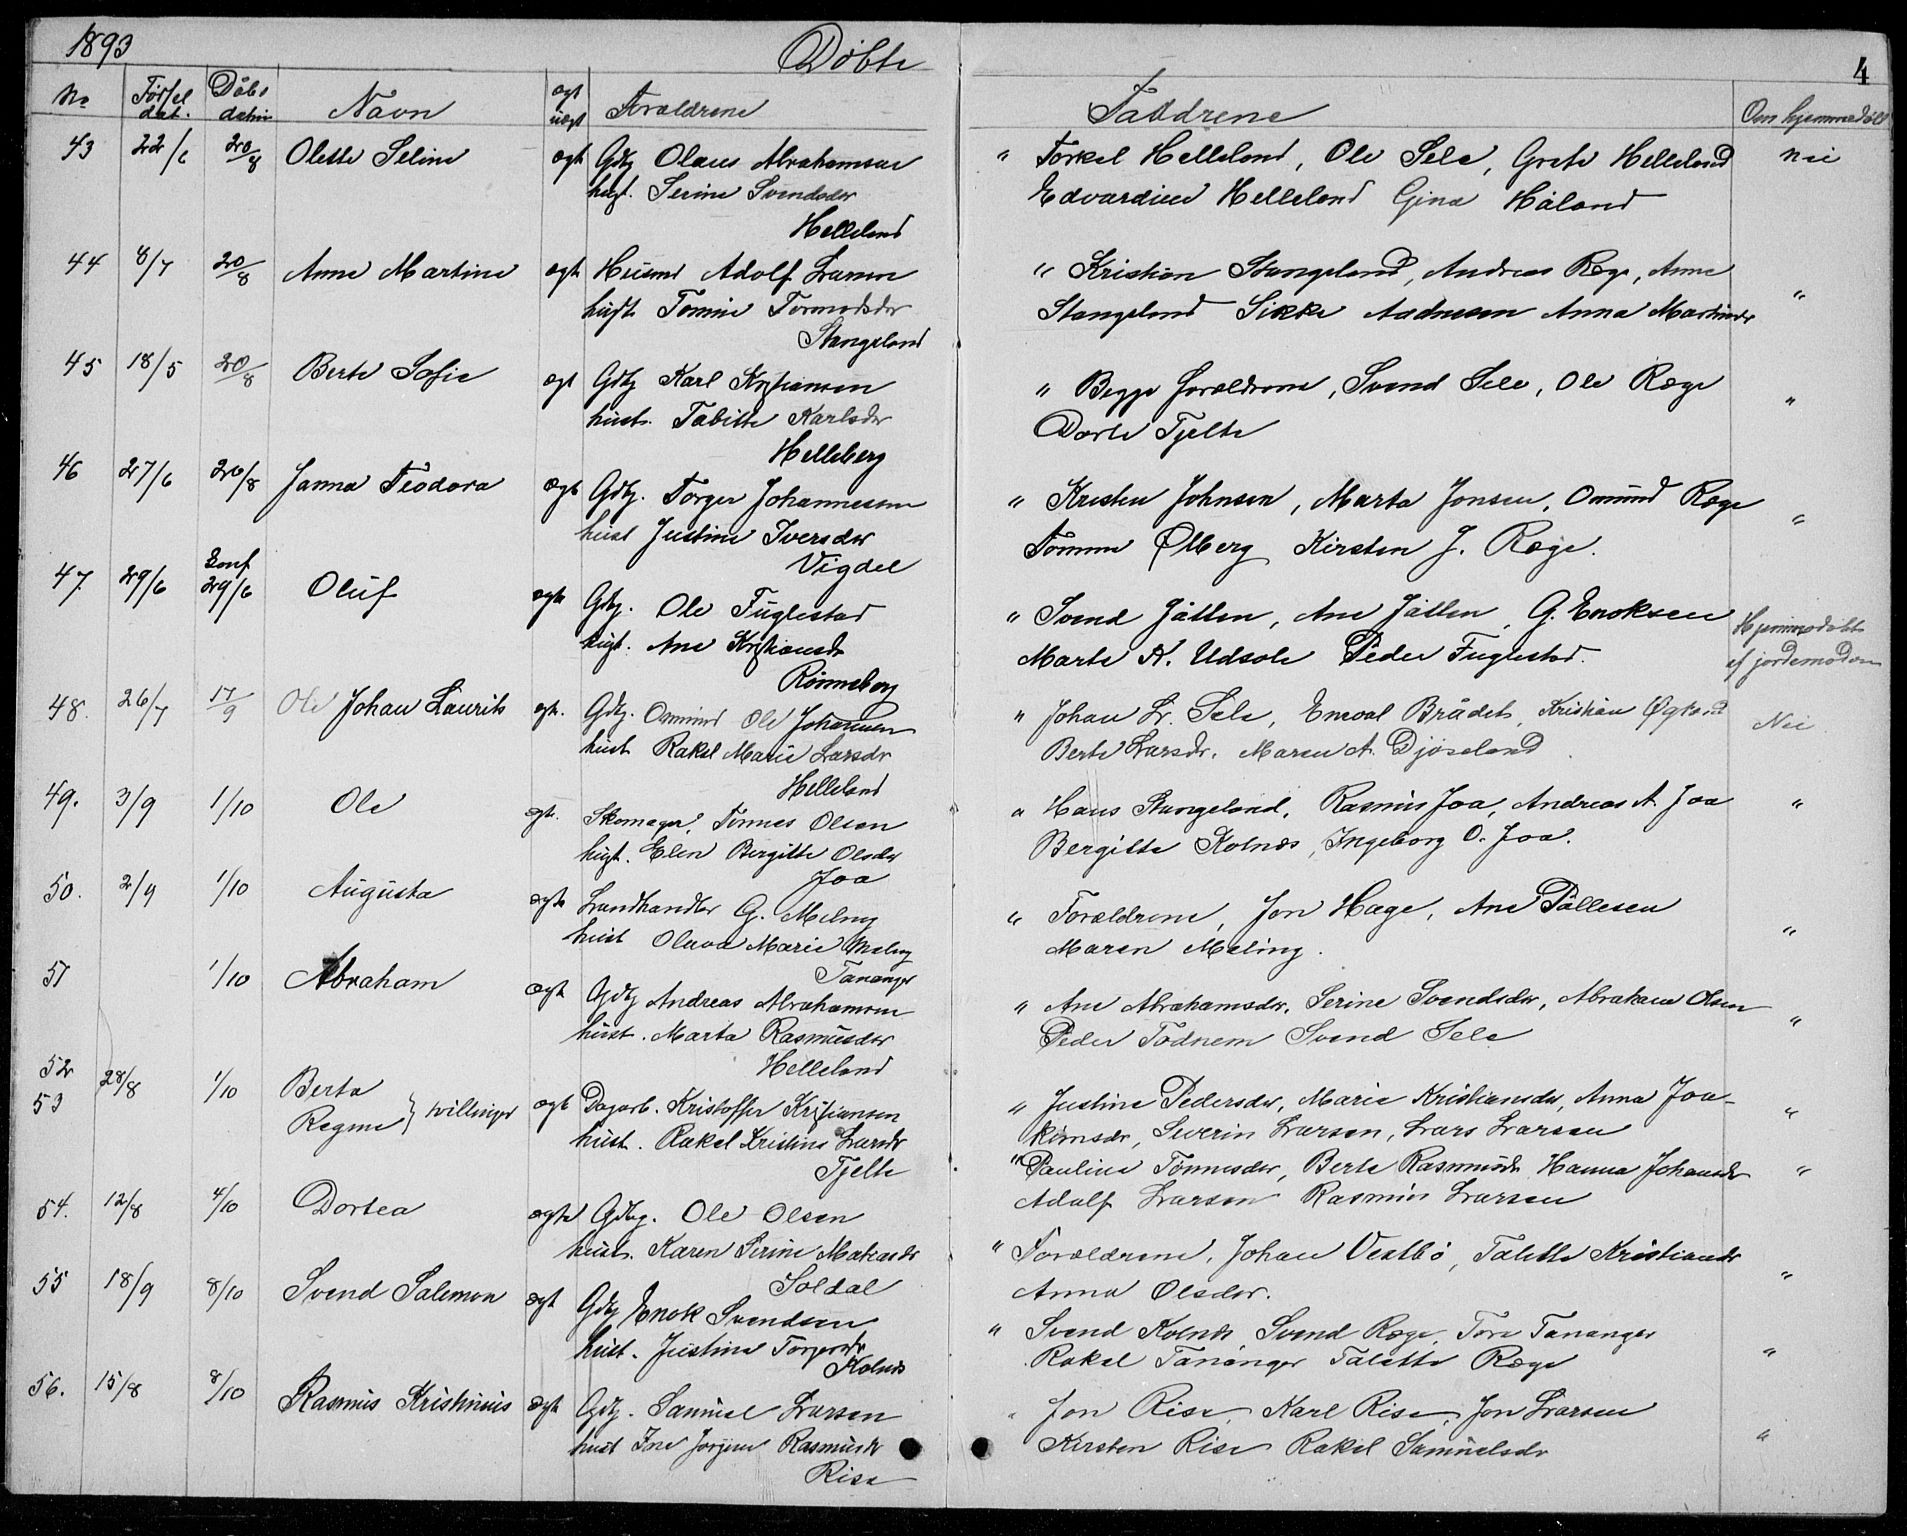 1893 Døbte 4
No Fødsel dat. Døbs datum Navn ægt uægt Forældrene Faddrene Om hjemmedøbt
43 22/6 20/8 Olette Seline ægt Gdbg Olaus Abrahamsen " Torkel Helleland, Ole Sele, Grete Helleland nei
hust. Serine Svendsdr Edvardine Helleland Gina Håland
Helleland
44 8/7 20/8 Anne Martine ægt Husmd Adolf Larsen " Kristian Stangeland, Andreas Rege, Anne
hust. Tomine Tormodsdr Stangeland Sikke Aadnesen Anna Martinsdr "
Stangeland
45 18/5 20/8 Berte Sofie ægt Gdbg Karl Kristiansen " Begge forældrene, Svend Sele, Ole Rege "
hust. Tabitte Karlsdr Dorte Tjelte
Helleberg
46 27/6 20/8 Janna Teodora ægt Gdbg. Torger Johannesen " Kristen Johnsen, Marta Jonsen, Omund Rege "
hust Justine Iversdr Tomme Ølberg Kirsten J. Rege.
Vigdel
47. 29/6 29/6 Oluf ægt Gdbg. Ole Fuglestad " Svend Jåtten, Ane Jåtten, G. Enoksen Hjemmedøbt
hust. Ane Kristiansdr Marte K. Udsola Peder Fuglestad. af jordemoderen
Rønneberg
48. 26/7 17/9 Ole Johan Laurits ægt. Gdbg. Ommund Ole Johansen " Johan Lr. Sele, Enevol Brådet, Kristian Nei
hust Rakel Marie Larsdr Berte Larsdr. Maren A. Djøseland
Helleland
49. 3/9 1/10 Ole ægt. Skomager, Tønnes Olsen " Hans Stangeland, Rasmus Joa, Andreas A. Joa "
hust. Elen Bergitte Olsdr Bergitte Kolnes, Ingeborg O. Joa.
Joa
50. 2/9 1/10 Augusta ægt Landhandler G. Meling " Forældrene, Jon Hage, Ane Pållesen "
hust Olava Marie Meling Maren Meling.
Tananger
51 1/10 Abraham ægt Gdbg Andreas Abrahamsen " Ane Abrahamsdr, Serine Svendsdr, Abraham Olsen "
hust. Marta Rasmusdr Peder Todnem Svend Sele
Helleland
52 28/8 1/10 Berta
53 Regine } tvillinger ægt Dagarb. Kristoffer Kristiansen " Justine Pedersdr, Marie Kristiansdr, Anna Joa- "
hust. Rakel Kristine Larsdr kimsdr, Severin Larsen, Lars Larsen
Tjelte " Pauline Tønnesdr, Berte Rasmusdr Hanna Johansdr "
Adolf Larsen Rasmus Larsen
54. 12/8 4/10 Dortea ægte Gdbg. Ole Olsen
hust. Karen Serine Matiasdr " Forældrene, Johan Vestbø, Talette Kristiansdr "
Soldal Anna Olsdr.
55 18/9 8/10 Svend Salemon ægt Gdbg Enok Svendsen " Svend Kolnes Svend Rege, Tore Tananger "
hust. Justine Torgersdr Rakel Tananger Talette Rege
Kolnes
56. 15/8 8/10 Rasmus Kristinius ægt Gdbg. Samuel Larsen " Jon Risa, Karl Risa, Jon Larsen "
hust Ine Jorjine Rasmusdr Kirsten Risa Rakel Samuelsdr
Risa